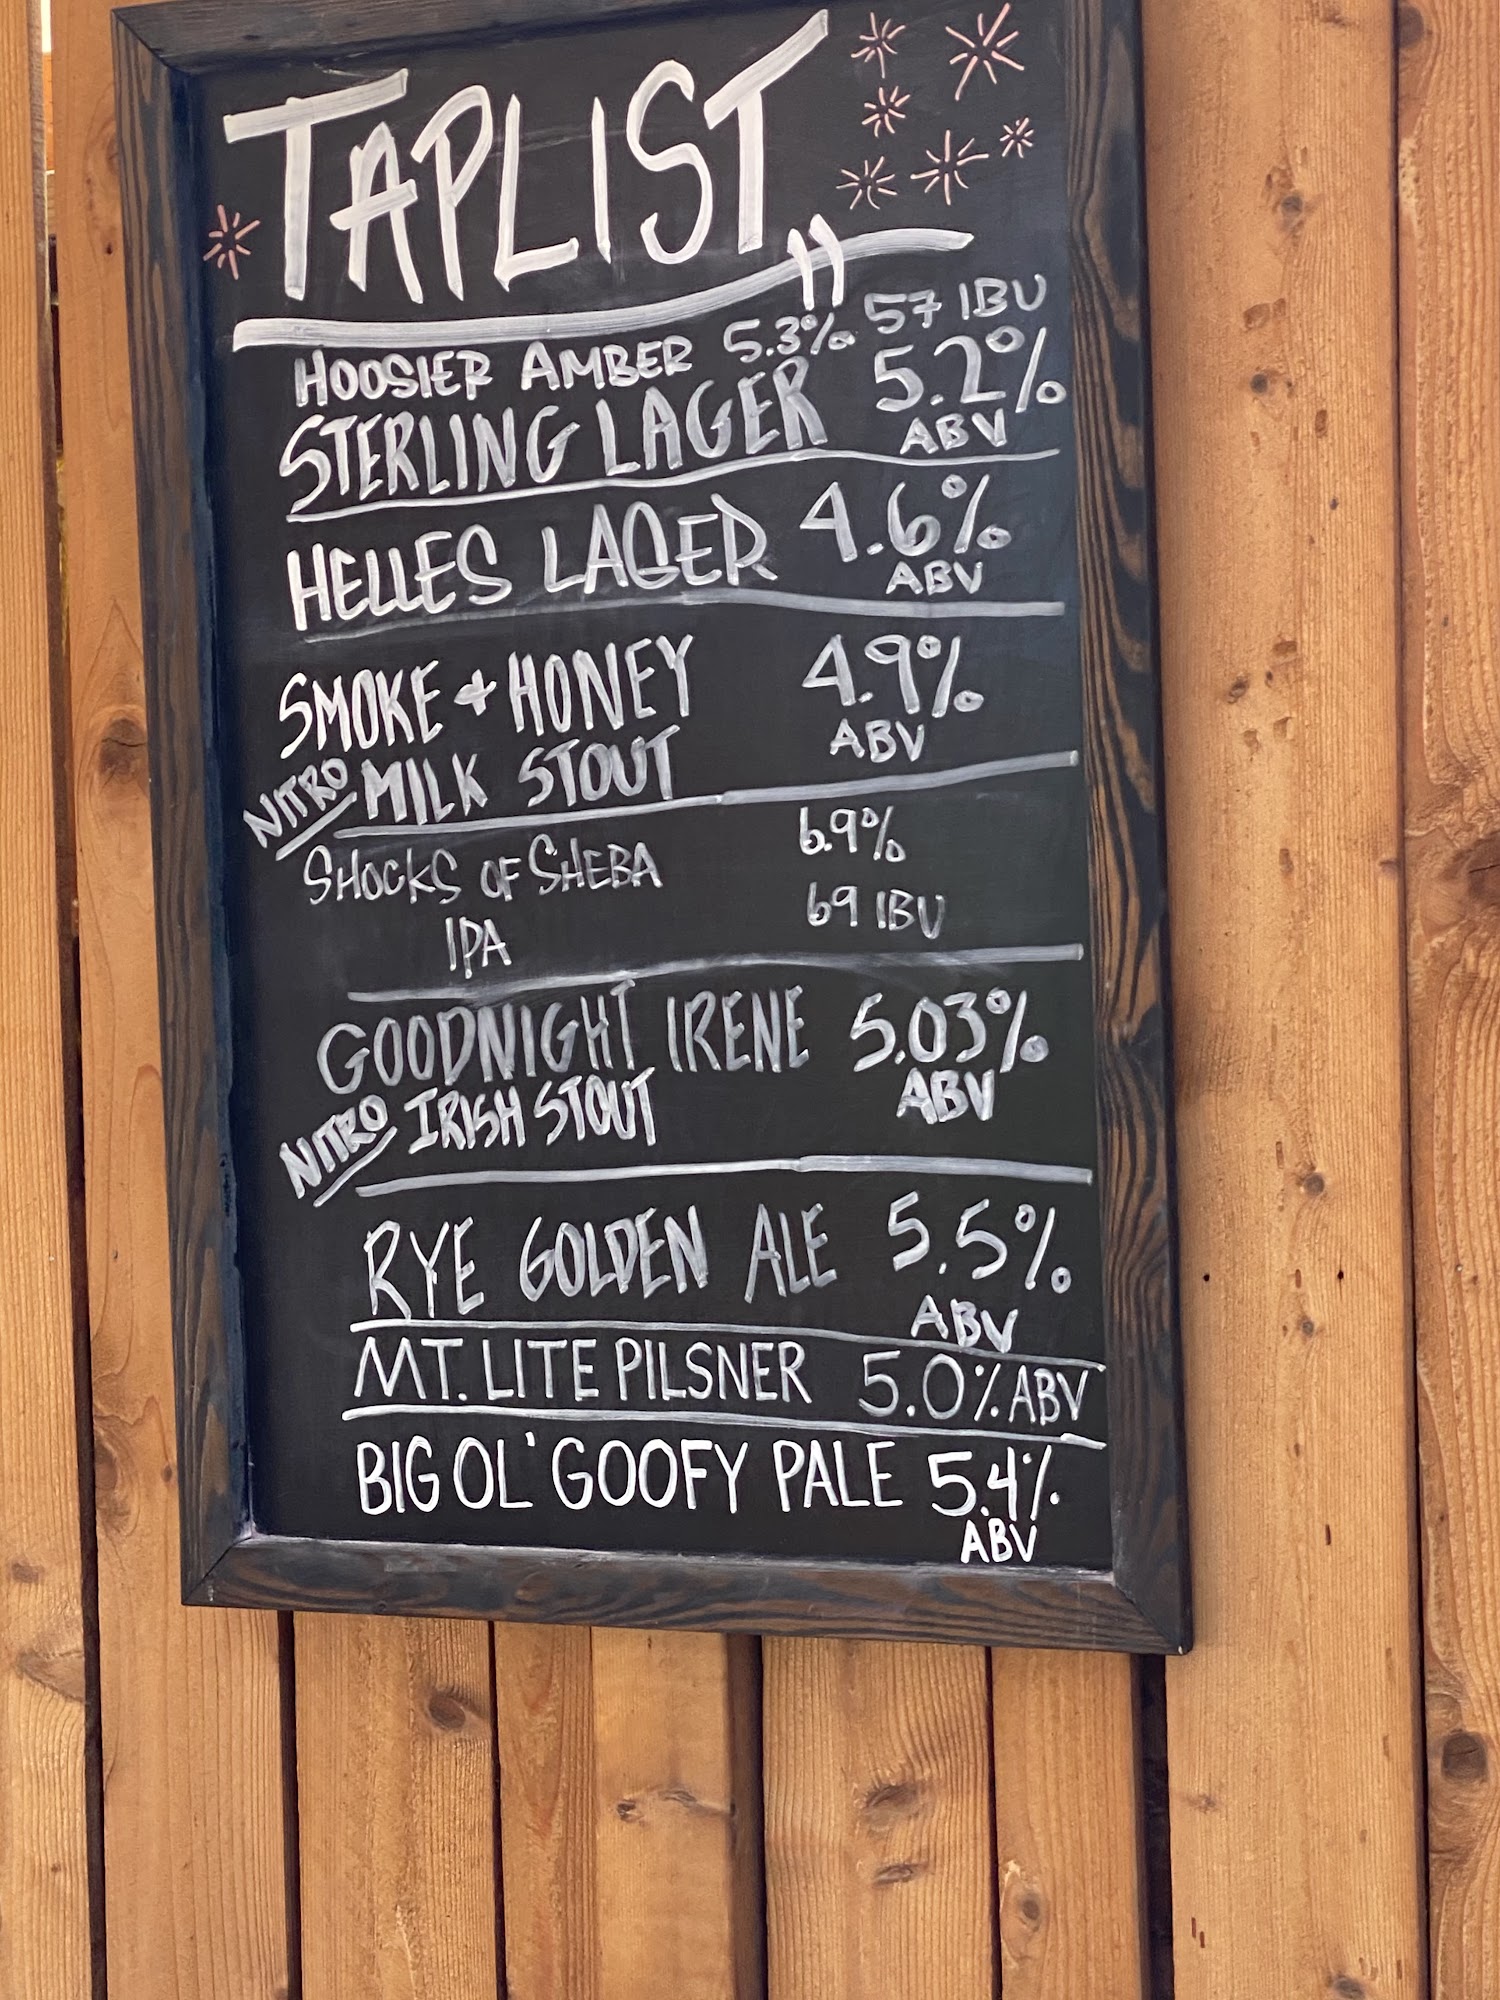 TAPLIST
HOOSIER AMBER 5.3% 57 IBU
STERLING LAGER 5.2%
ABV
HELLES LAGER 4.6%
ABV
SMOKE + HONEY 4.9%
ABV
NITRO MILK STOUT
SHOCKS OF SHEBA 6.9%
IPA 69 IBU
GOODNIGHT IRENE 5.03%
NITRO IRISH STOUT ABV
RYE GOLDEN ALE 5.5%
ABV
MT. LITE PILSNER 5.0% ABV
BIG OL' GOOFY PALE 5.4%
ABV